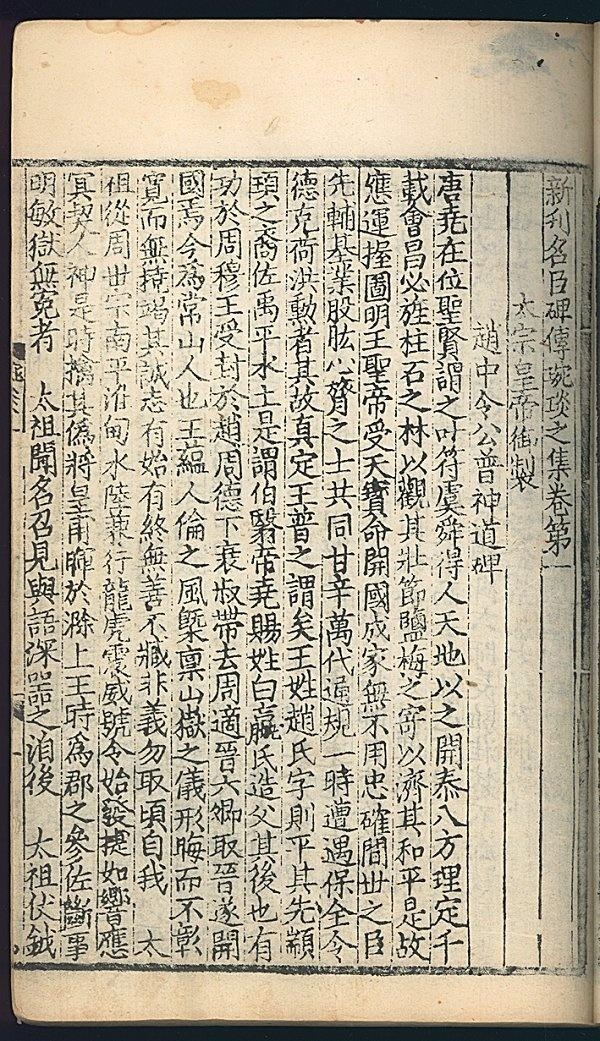 新刊名臣碑傳琬琰之集卷第一
太宗皇帝御製
趙中令公普神道碑
唐堯在位聖賢謂之叶符虞舜得人天地以之開泰八方理定千
載會昌必旌柱石之林以觀其壯節鹽梅之寄以濟其和平是故
應運握圖明王聖帝受天寶命開國成家無不用忠確間世之臣
先輔基業股肱心膂之士共同甘辛萬代通規一時遭遇保全令
德克荷洪勳者其故真定王普之謂矣王姓趙氏字則平其先顓
頊之裔佐禹平水土是謂伯翳帝堯賜姓曰嬴氏造父其後也有
功於周穆王受封於趙周德下衰叔帶去周適晉六卿取晉遂開
國焉今為常山人也王蘊人倫之風槩禀山嶽之儀形晦而不彰
寬而無撓竭其誠志有始有終無善不臧非義勿取頃自我 太
祖從周世宗南平淮甸水陸兼行龍虎震威號令始發捷如響應
冥契人神是時擒其偽將皇甫暉於滁上王時為郡之參佐斷事
明敏獄無冤者 太祖聞名召見與語深器之洎後 太祖伏鉞